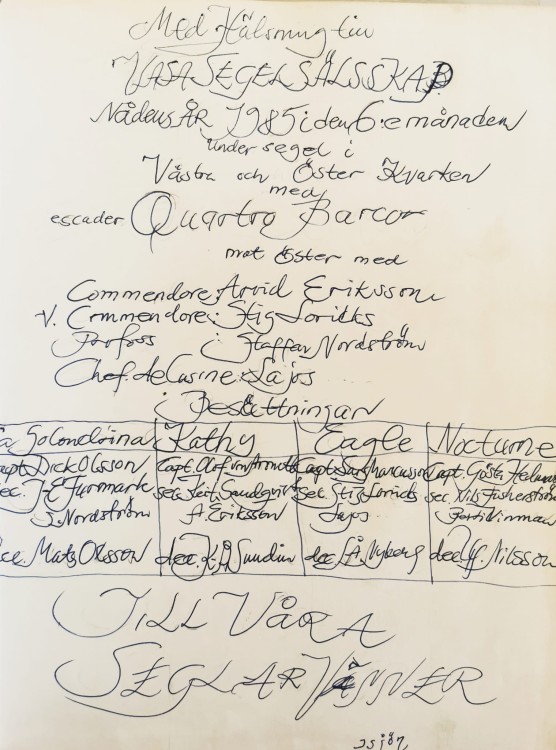 Med Hälsning till
VASA SEGELSÄLSSKAP
Nådens ÅR 1985 i den 6:e månaden
under segel i
Västra och Öster Kvarken
med
escader Quartro Barcor
mot Öster med
Commendore: Arvid Eriksson
V. Commendore: Stig Loricks
Porfoss : Staffan Nordström
Chef de Cusine: Lajos
: Besättningar
Golondrina Kathy Eagle Nocturne
Capt. Dick Olsson Capt. Olof von Capt. Capt. Gösta
sec. J-E Furmark sec. Sundqvist sec. Stig Loricks sec. Nils Fisherström
S. Nordström A. Eriksson Lajos Vinman
dec. Mats Olsson dec. Sundin dec. Å. Nyberg dec. Ulf. Nilsson
TILL VÅRA
SEGLARVÄNNER